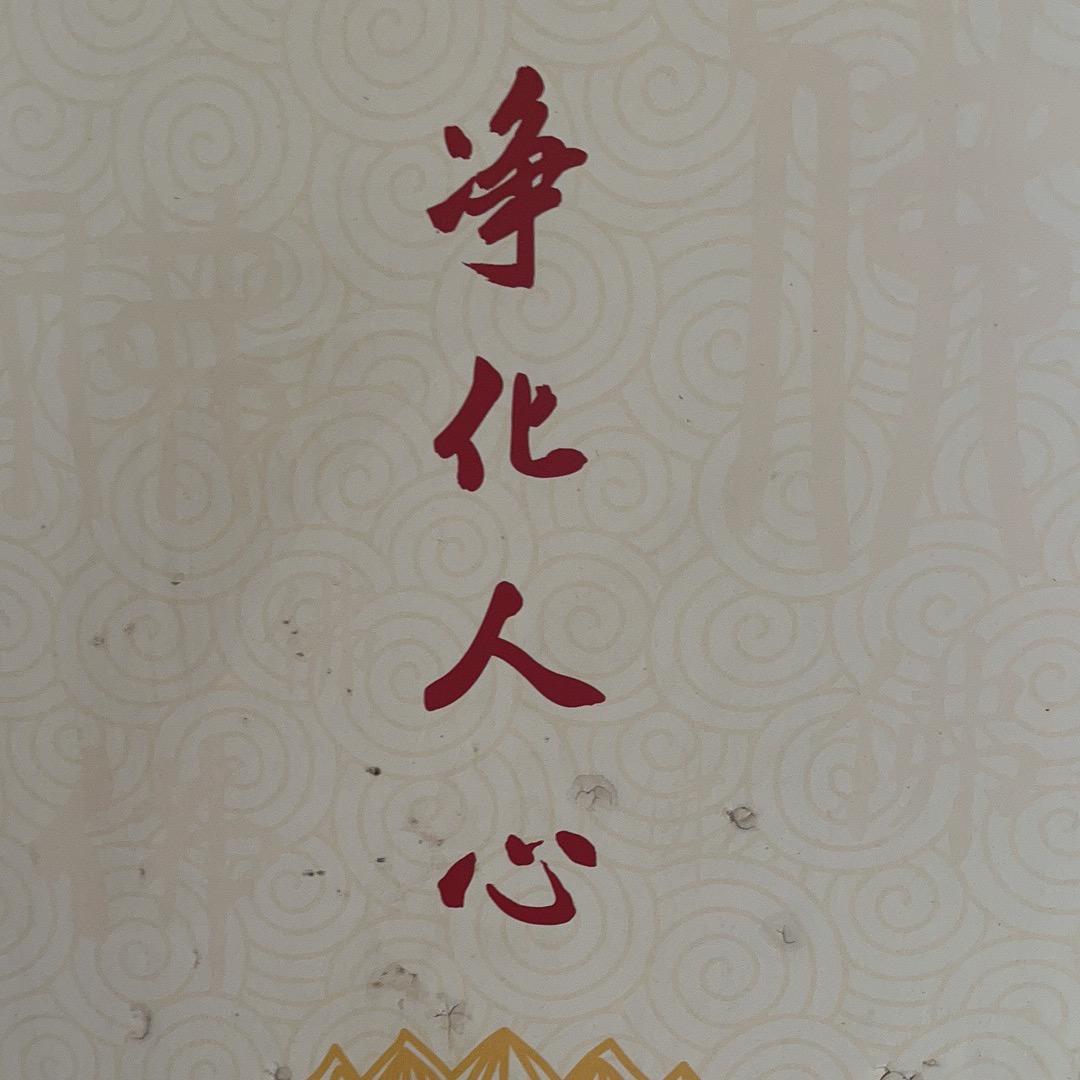 净化人心